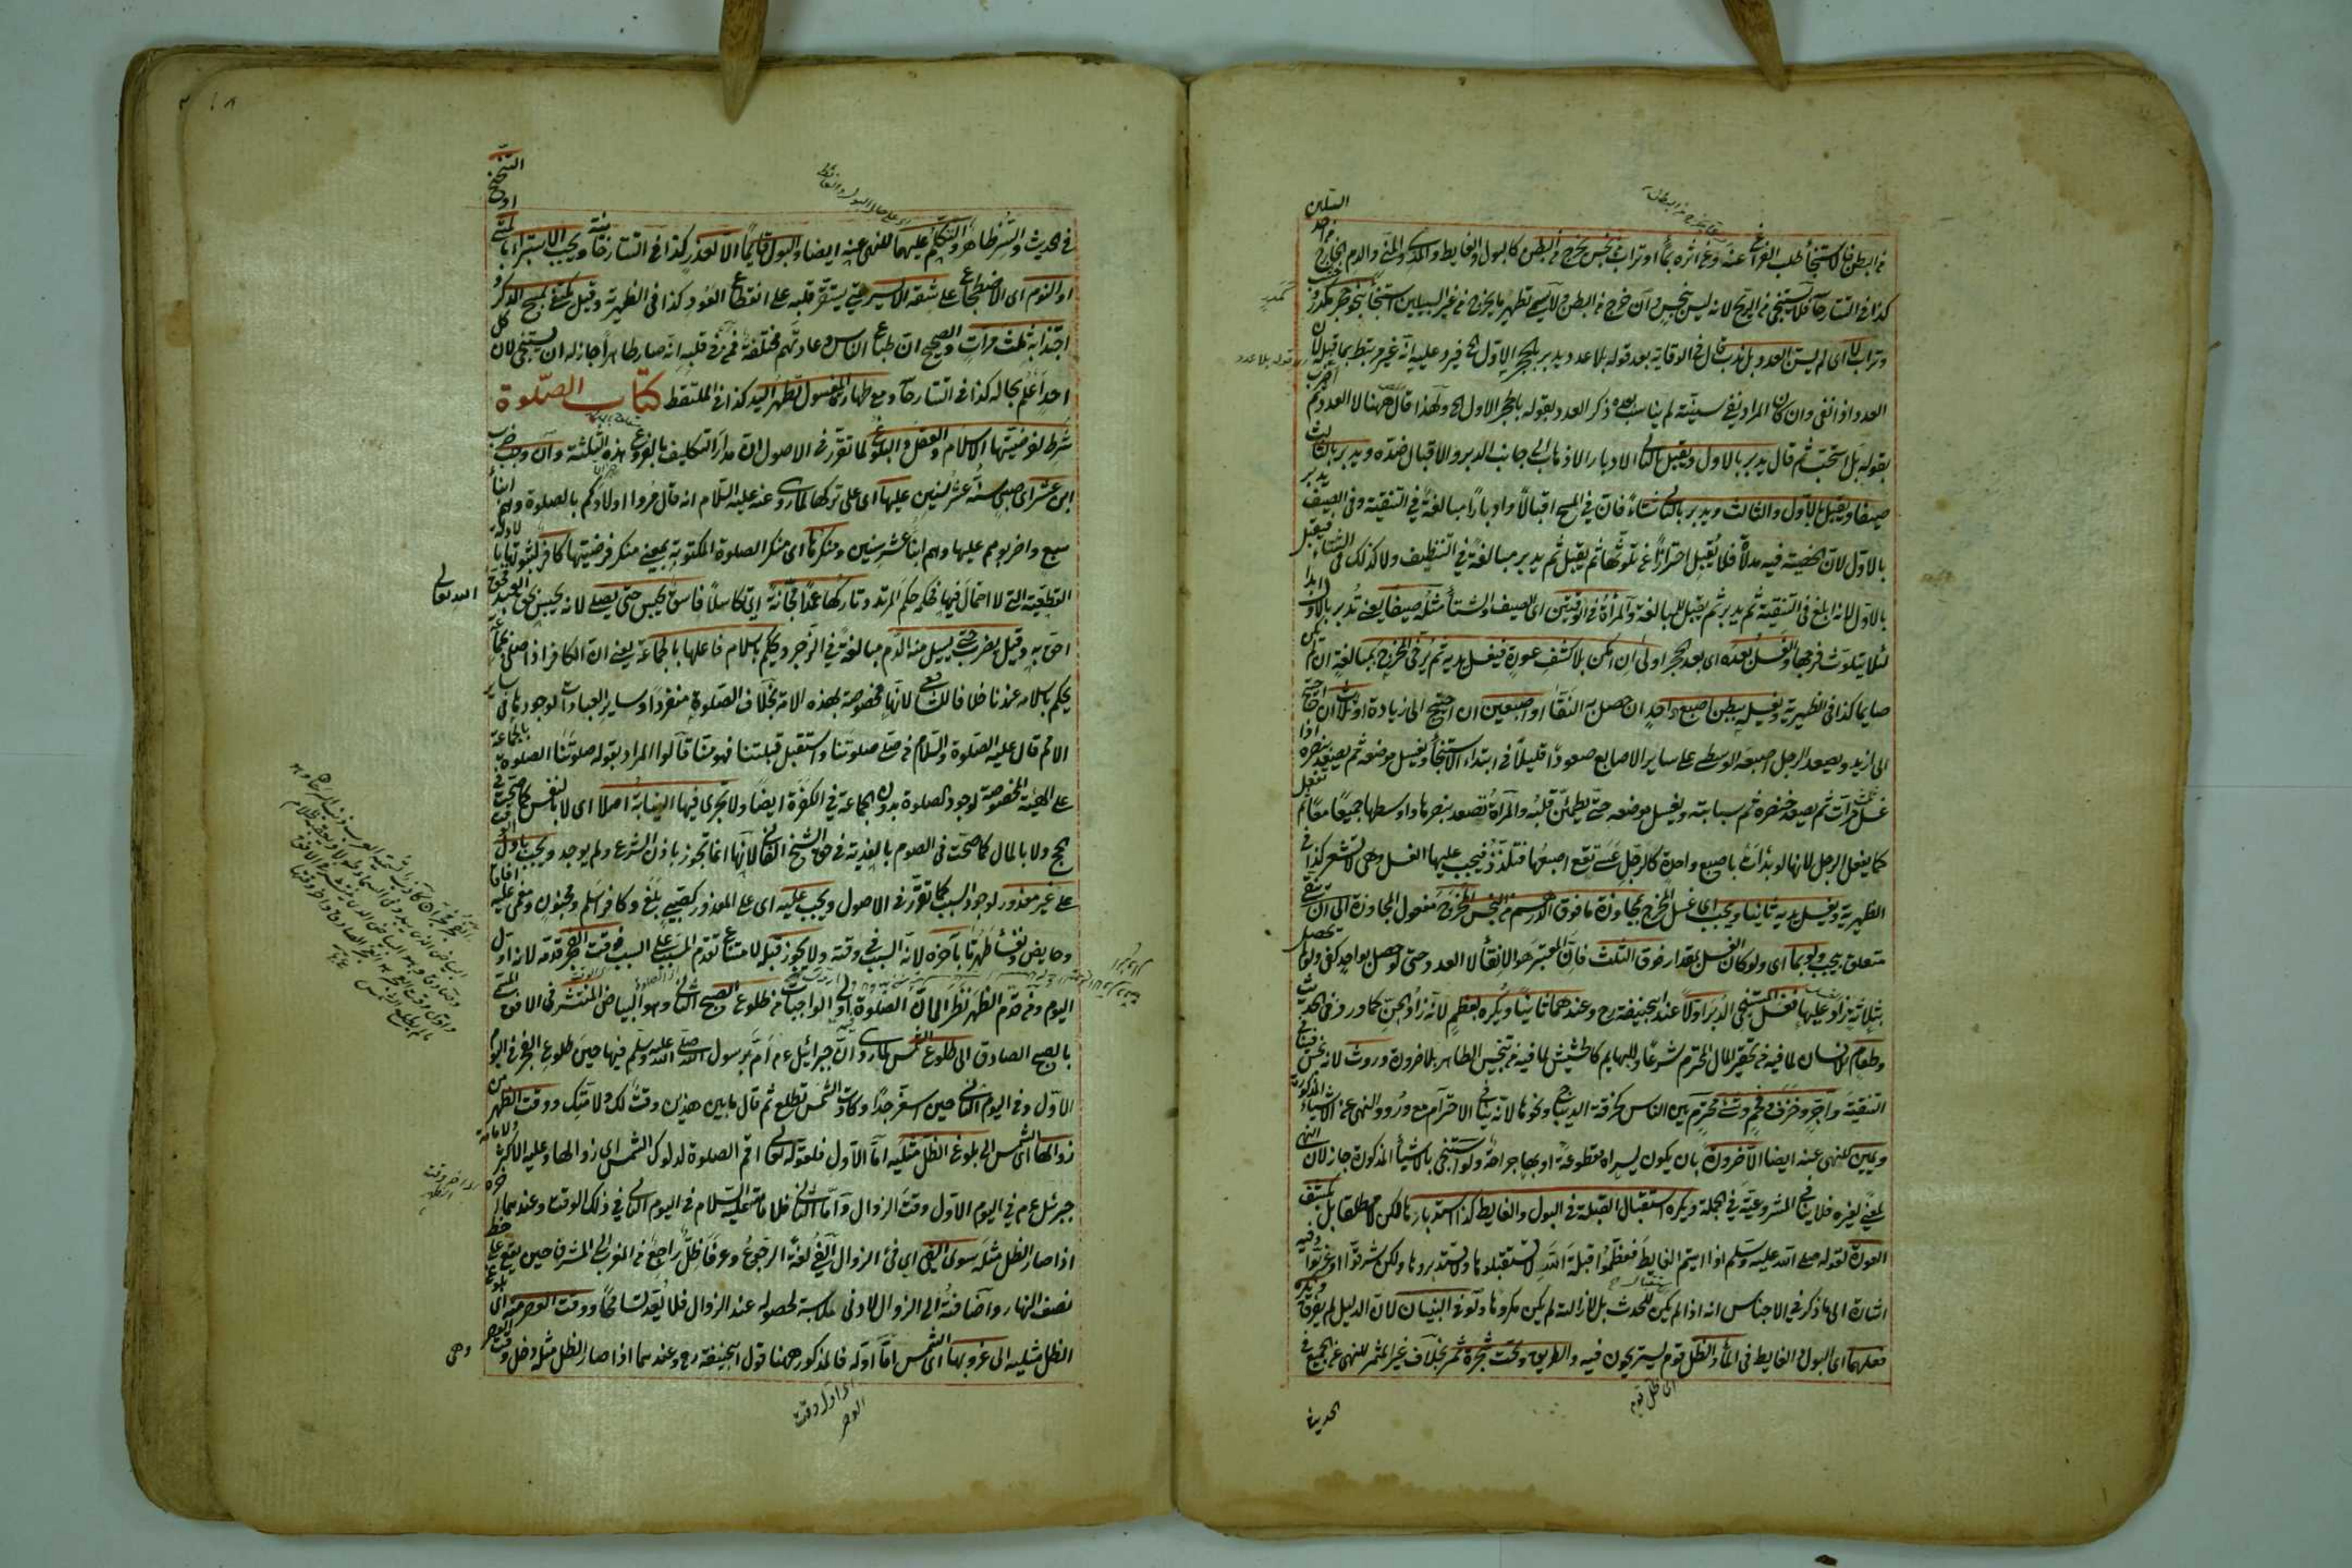 من البطن فالاستنجاء طلب الفراغ عنه وعن اثره بماء او تراب من نجس يخرج من البطن كالبول والغايط والمذي والمني والدم الخارج
كذا في التتارخا فلا يستنجى من الريح لانه ليس بنجس وان خرج من البطن ولا يسمى تطهير ما يخرج من غير السبيلين استنجاء بنحو حجر كمدر
وتراب لا اى لم يسن العدد بل ندب قال في الوقاية بعد قوله بلا عدد ويدبر بالحجر الاول الخ فيرد عليه انه غير مرتبط بما قبله لان
العدد اذا نفى وان كان المراد نفى سنيته لم يناسب بعده ذكر العدد بقوله بالحجر الاول الخ ولهذا قال ههنا لا العدد ثم
بقوله بل استحب ثم قال يدبر بالاول ويقبل بالثاني الادبار الاذهاب الى جانب الدبر والاقبال ضده ويدبر بالثالث
صيفا ويقبل بالاول والثالث ويدبر بالثاني شتاء فان في المسح اقبالا وادبارا مبالغة في التنقية وفي الصيف يدبر
بالاول لان الخصية فيه مدلاة فلا يقبل احترازا عن تلوثها ثم يقبل ثم يدبر مبالغة في التنظيف ولا كذلك في الشتاء فيقبل
بالاول لانه ابلغ في التنقية ثم يدبر ثم يقبل للمبالغة والمرأة في الوقتين اى الصيف والشتاء مثله صيفا يعنى تدبر بالاول ابدا
لئلا يتلوث فرجها والغسل بعده اى بعد الحجر اولى ان امكن بلا كشف عورة فيغسل يديه ثم يرخى المخرج بمبالغة ان لم يكن
صايما كذا في الظهيرية ويغسله ببطن اصبع واحد ان حصل به النقاء او اصبعين ان احتيج الى زيادة او ثلاث ان احتيج
الى ازيد ويصعد الرجل اصبعه الوسطى على ساير الاصابع صعودا قليلا في ابتداء الاستنجاء ويغسل موضعه ثم يصعد بنصره اذا
غسل مرات ثم يصعد خنصره ثم سبابته ويغسل موضعه حتى يطمئن قلبه والمرأة تصعد بنصرها واوسطها جميعا معا ثم تفعل
كما يفعل الرجل لانها لو بدأت باصبع واحدة كالرجل عسى تقع اصبعها فتتلذذ فيجب عليها الغسل وهى لا تشعر كذا في
الظهيرية ويغسل يديه ثانيا ويجب اى غسل المخرج بمجاوزة ما فوق الدرهم من النجس المخرج مفعول المجاوزة الى ان ينقى
متعلق بيجب ولو بما اى ولو كان الغسل بمقدار فوق الثلث فان المعتبر هو الانقاء لا العدد وحتى لو حصل بواحد كفى ولو لم يحصل
بثلاثة يزاد عليها فغسل المستنجى الدبر اولا عند ابى حنيفة رح وعندهما ثانيا ويكره بعظم لانه زاد الجن كما ورد في الحديث
وطعام للانسان لما فيه من تحقير المال المحترم شرعا وللبهايم كالحشيش لما فيه من تنجيس الطاهر بلا ضرورة وروث لانه نجس
التنقية واجر وخزف وفحم وشئ محترم بين الناس كخرقة الديباج ونحوها لانه ينافى الاحترام مع ورود النهى عن الاشياء المذكورة
ويمين للنهى عنه ايضا الا لضرورة بان يكون يسراه مقطوعة او بها جراحة ولو استنجى بالاشياء المذكورة جاز لان النهى
لمعنى لغيره فلا ينافى المشروعية في الجملة ويكره استقبال القبلة في البول والغايط كذا استدبارها لكن لا مطلقا بل
العورة لقوله صلى الله عليه وسلم اذا اتيتم الغايط فعظموا قبلة الله لا تستقبلوها ولا تستدبروها ولكن شرقوا او غربوا وفيه
اشارة الى ما ذكر في الاجناس انه اذا لم يكن للحدث بل لازالته لم يكن مكروها ولو في البنيان لان الدليل لم يفرق ويكره
فعلهما اى البول والغايط في الماء والظل قوم يستريحون فيه والطريق وتحت شجرة مثمر بخلاف غير المثمر للنهى عن الجميع في
الحديث
في الحديث والتستر ظاهر والتكلم عليهما للنهى عنه ايضا والبول قايما الا لعذر كذا في التتارخانية ويجب الاستبراء بالمشى
او التنحنح
او النوم اى الاضطجاع على شقه الايسر حتى يستقر قلبه على انقطاع العود كذا في الظهيرية وقيل يكتفى بمسح الذكر و
اجتذابه ثلث مرات والصحيح ان طباع الناس وعادتهم مختلفة فمن في قلبه انه صار طاهرا جاز له ان يستنجى لان كل
احد اعلم بحاله كذا في التتارخا ومع طهارة المغسول تطهر اليد كذا في الملتقط كتاب الصلوة
شرط لفرضيتها الاسلام والعقل والبلوغ لما تقرر في الاصول ان مدار التكليف بالفروع هذه الثلثة وان وجب ضرب
ابن عشر اى صبى سنه عشر سنين عليها اى على تركها لما روى عنه عليه السلام انه قال مروا اولادكم بالصلوة وهم ابناء
سبع واضربوهم عليها وهم ابناء عشر سنين ومنكرها اى منكر الصلوة المكتوبة بمعنى منكر فرضيتها كافر لثبوتها بالادلة
القطعية التى لا احتمال فيها فحكمه حكم المرتد وتاركها عمدا مجانة اى تكاسلا فاسق يحبس حتى يصلى لانه يحبس لحق العبد فحق
الله تعالى
احق به وقيل يضرب حتى يسيل منه الدم مبالغة في الزجر ويحكم باسلام فاعلها بالجماعة يعنى ان الكافر اذا صلى بجماعة
يحكم باسلامه عندنا خلافا للشافعى لانها مخصوصة بهذه الامة بخلاف الصلوة منفردا وساير العبادات لوجودها في ساير
الامم قال عليه الصلوة والسلام من صلى صلوتنا واستقبل قبلتنا فهو منا قالوا المراد بقوله صلوتنا الصلوة بالجماعة
على الهيئة المخصوصة لوجود الصلوة بدون الجماعة في الكفرة ايضا ولا تجرى فيها النيابة اصلا اى لا بالنفس كما صحت في
الحج ولا بالمال كما صحت في الصوم بالفدية في حق الشيخ الفانى لانها انما تجوز باذن الشرع ولم يوجد ويجب باول الوقت
على غير معذور لوجود السبب كما تقرر في الاصول ويجب عليه اى على المعذور كصبى بلغ وكافر اسلم ومجنون ومغمى عليه افاقا
وحايض ونفساء طهرتا بآخره لانه السبب في وقته ولا يجوز قبله لامتناع تقدم المسبب على السبب وقت الفجر قدمه لانه اول
اليوم ومن قدم الظهر نظر الى ان الصلوة اولى الواجبات من طلوع الصبح الثانى وهو البياض المنتشر في الافق المسمى
بالصبح الصادق الى طلوع الشمس لما روى ان جبرائيل ع م ام برسول الله صلى الله عليه وسلم فيها حين طلوع الفجر في اليوم
الاول وفي اليوم الثانى حين اسفر جدا وكادت الشمس تطلع ثم قال ما بين هذين وقت لك ولامتك ووقت الظهر من
زوالها اى الشمس الى بلوغ الظل مثليه اما الاول فلقوله تعالى اقم الصلوة لدلوك الشمس اى زوالها وعليه الاكثر ولامامة
جبرئيل ع م في اليوم الاول وقت الزوال واما الثانى فلامامته عليه السلام في اليوم الثانى في ذلك الوقت وعندهما آخره
اذا صار الظل مثله سوى الفئ اى فئ الزوال الفئ لغة الرجوع وعرفا ظل راجع من المغرب الى المشرق حين يقع على خط
نصف النهار واضافته الى الزوال لادنى ملابسة لحصوله عند الزوال فلا يعد تسامحا ووقت العصر منه اى بلوغ
الظل مثليه الى غروبها اى الشمس اما اوله فالمذكور ههنا قول ابى حنيفة رح وعندهما اذا صار الظل مثله دخل وقت العصر
وهى
اى اول وقت
العصر